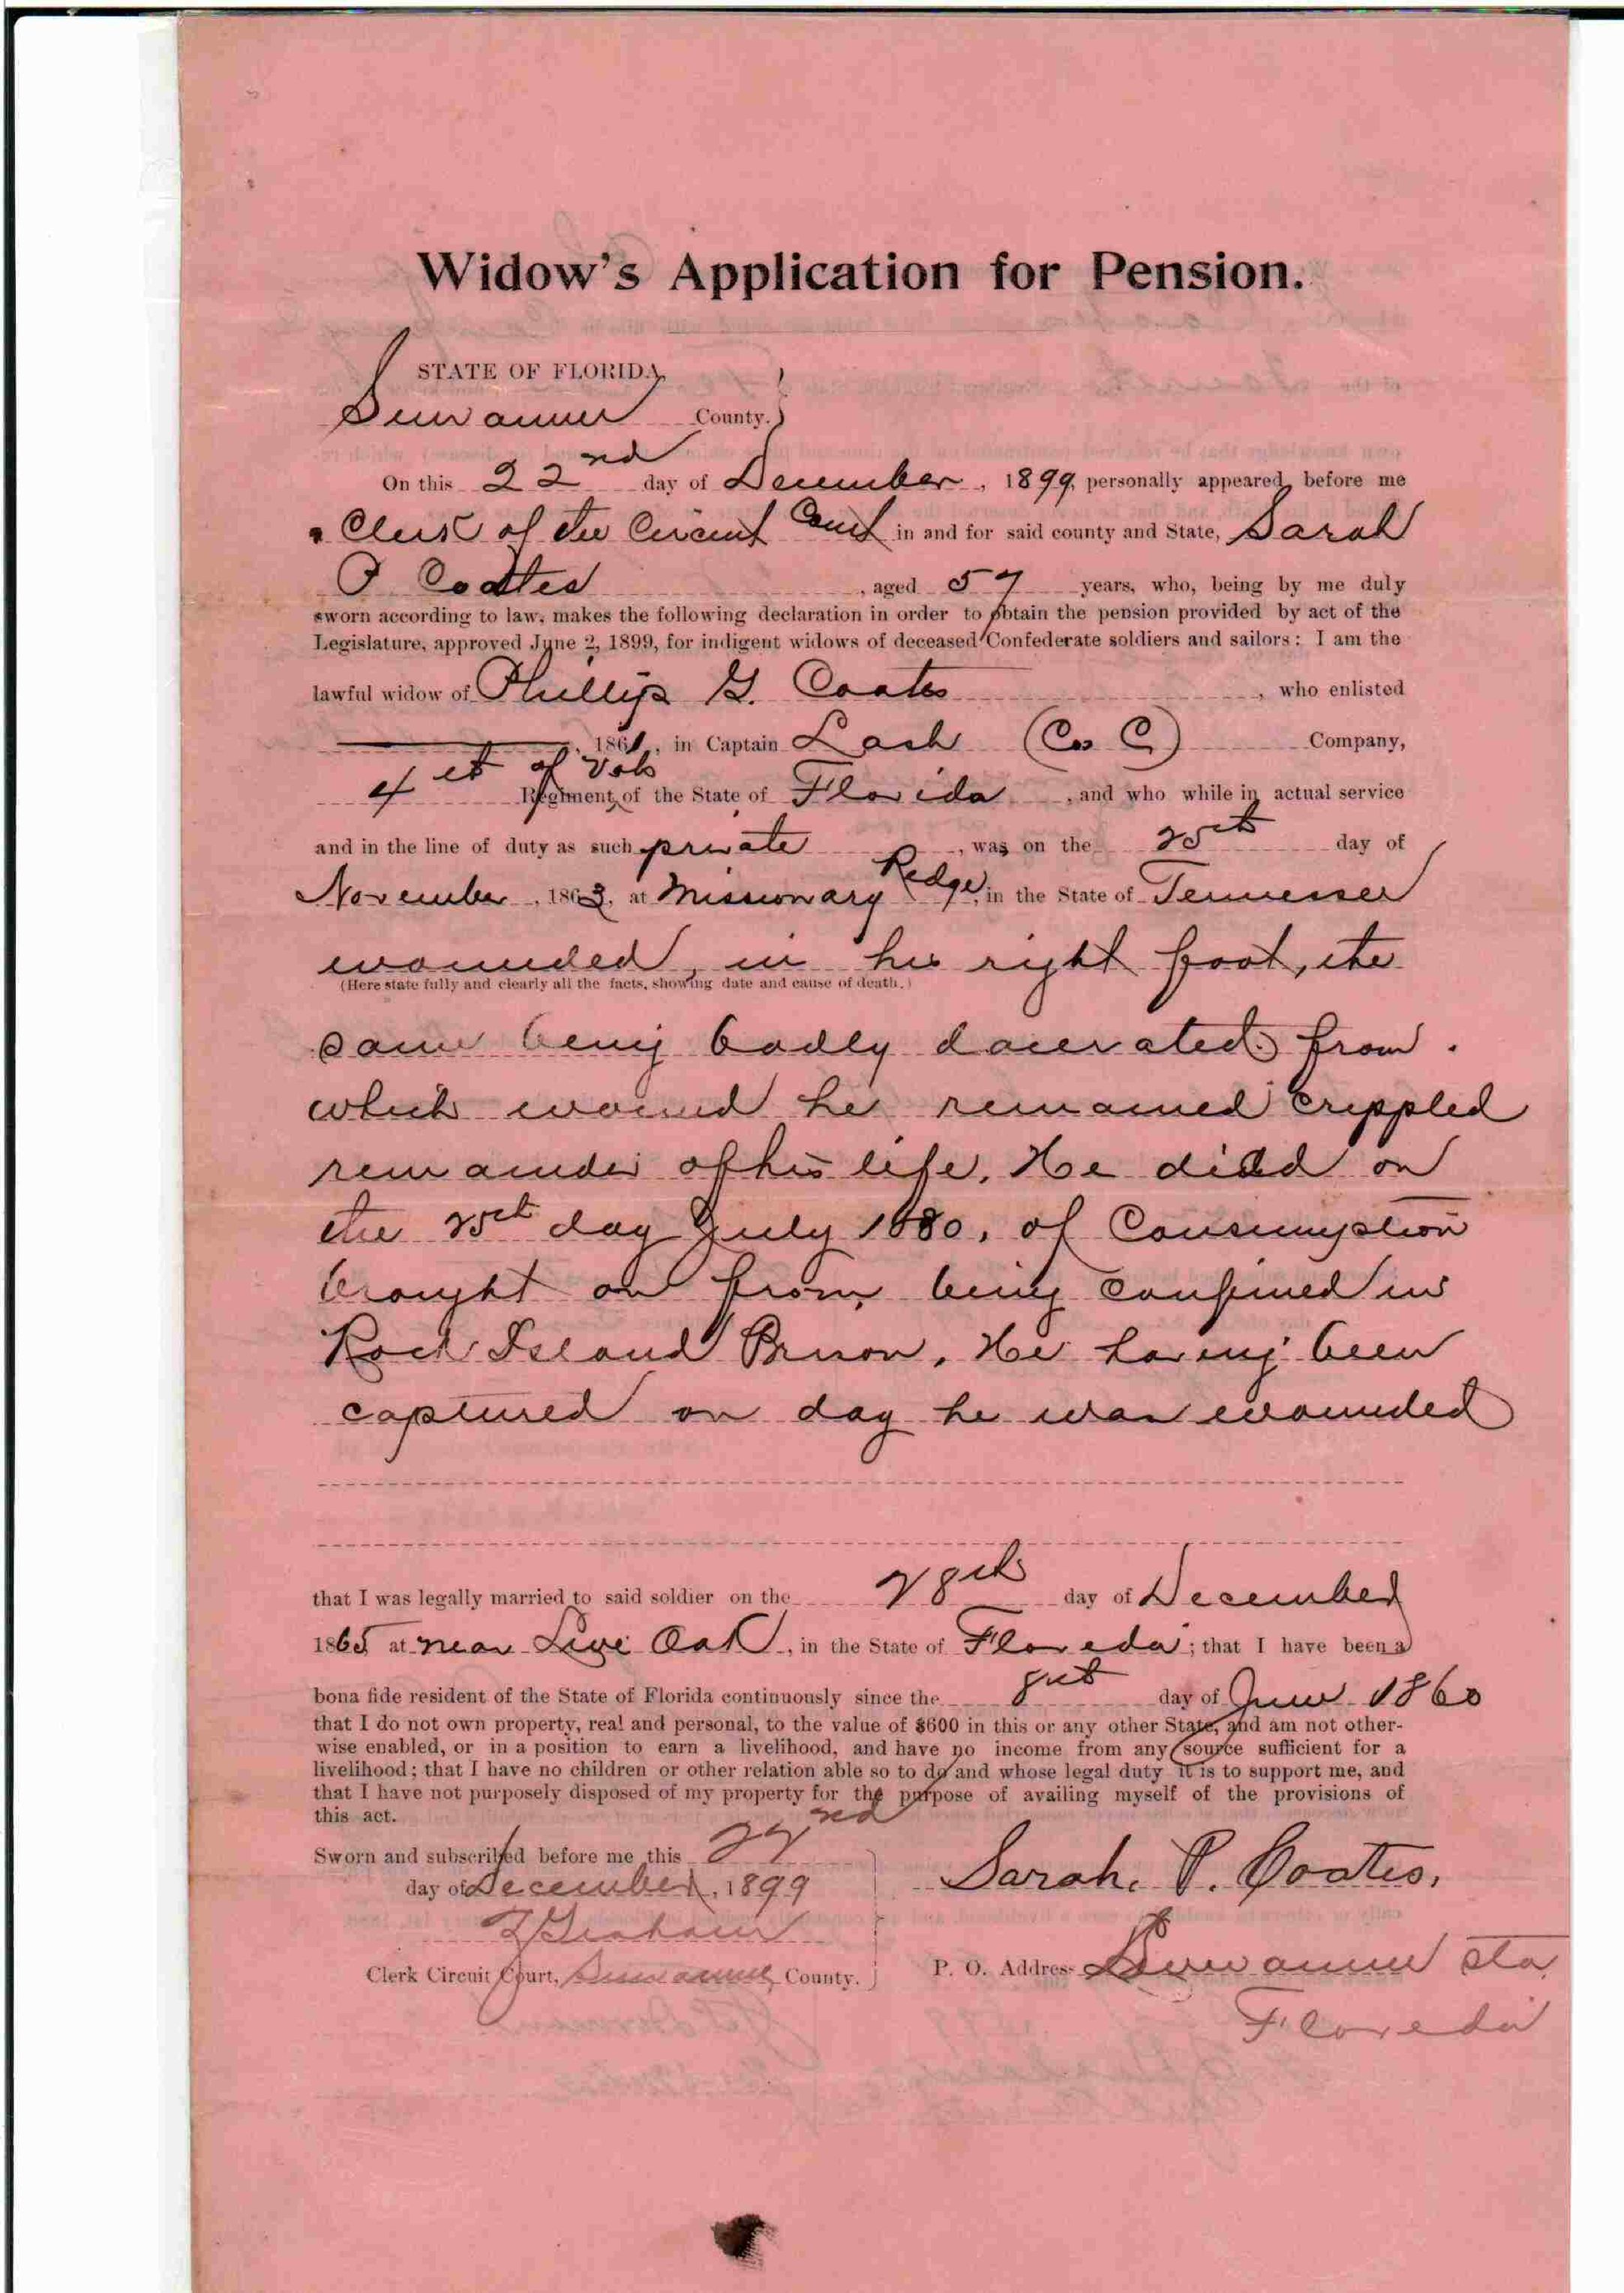 Widow's Application for Pension.
STATE OF FLORIDA,
Suwannee County.
On this 22nd day of December, 1899, personally appeared before me
a Clerk of the Circuit Court in and for said county and State, Sarah
P Coates, aged 57 years, who, being by me duly
sworn according to law, makes the following declaration in order to obtain the pension provided by act of the
Legislature, approved June 2, 1899, for indigent widows of deceased Confederate soldiers and sailors: I am the
lawful widow of Phillip G. Coates, who enlisted
, 1861, in Captain Lash (Co C) Company,
4th Regiment of Vols of the State of Florida, and who while in actual service
and in the line of duty as such private, was on the 25th day of
November, 1863, at Missionary Redge, in the State of Tennessee
wounded, in his right foot, the
(Here state fully and clearly all the facts, showing date and cause of death.)
same being badly lacerated from
which wound he remained crippled
remainder of his life. He died on
the 25th day July 1880, of Consumption
brought on from being confined in
Rock Island Prison. He having been
captured on day he was wounded
that I was legally married to said soldier on the 28th day of December
1865 at near Live Oak, in the State of Florida; that I have been a
bona fide resident of the State of Florida continuously since the day of June 1860
that I do not own property, real and personal, to the value of $600 in this or any other State, and am not other-
wise enabled, or in a position to earn a livelihood, and have no income from any source sufficient for a
livelihood; that I have no children or other relation able so to do and whose legal duty it is to support me, and
that I have not purposely disposed of my property for the purpose of availing myself of the provisions of
this act.
Sworn and subscribed before me this 22nd
day of December, 1899
Sarah. P. Coates.
Clerk Circuit Court, Suwannee County.
P. O. Address Suwannee Sta
Florida